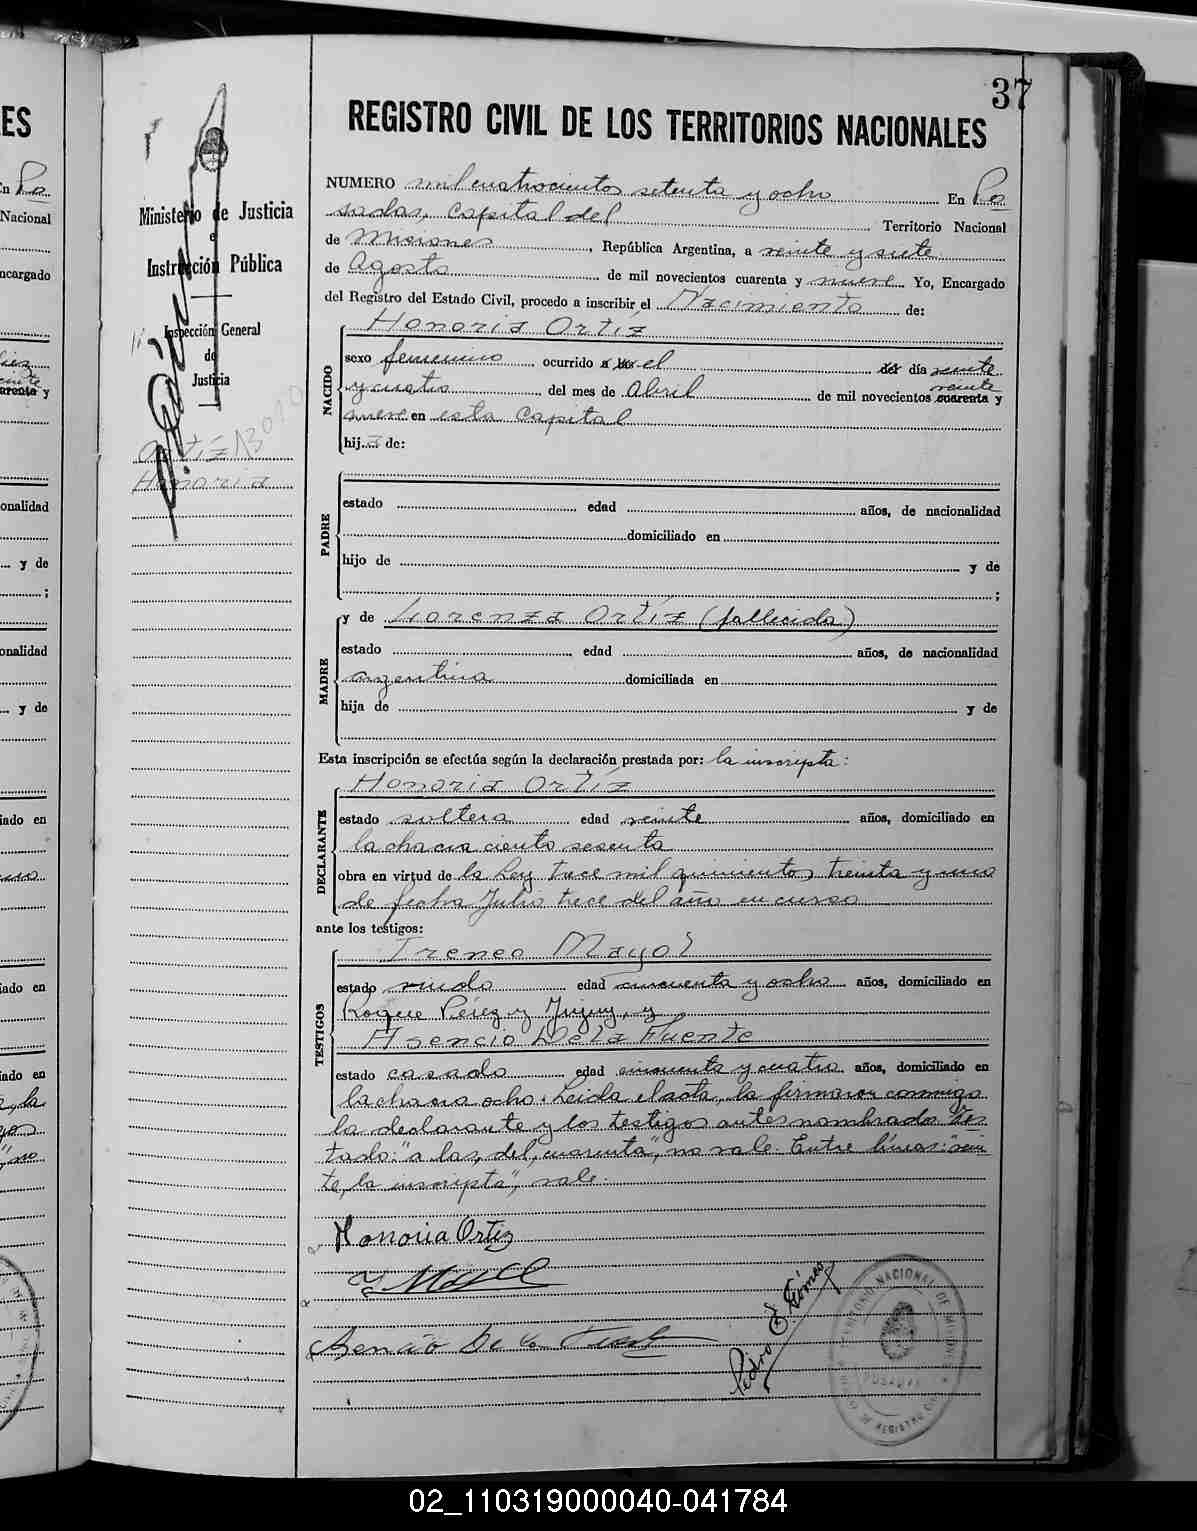 37
REGISTRO CIVIL DE LOS TERRITORIOS NACIONALES
Ministerio de Justicia
e
Instrucción Pública
Inspección General
de
Justicia
Ortíz
Honoria
NUMERO mil cuatrocientos setenta y ocho En Po
sadas, Capital del Territorio Nacional
de Misiones, República Argentina, a veinte y siete
de Agosto de mil novecientos cuarenta y nueve Yo, Encargado
del Registro del Estado Civil, procedo a inscribir el Nacimiento de:
Honoria Ortíz
NACIDO
sexo femenino ocurrido a las el del día veinte
y cuatro del mes de Abril de mil novecientos veinte cuarenta y
nueve en esta Capital
hija de:
PADRE
estado edad años, de nacionalidad
domiciliado en
hijo de y de
;
MADRE
y de Lorenza Ortíz (fallecida)
estado edad años, de nacionalidad
argentina domiciliada en
hija de y de
Esta inscripción se efectúa según la declaración prestada por: la inscripta:
DECLARANTE
Honoria Ortíz
estado soltera edad veinte años, domiciliado en
la chacra ciento sesenta
obra en virtud de la Ley trece mil quinientos treinta y uno
de fecha Julio trece del año en curso
ante los testigos:
TESTIGOS
Ireneo Mayol
estado viudo edad cincuenta y ocho años, domiciliado en
Roque Pérez y Jujuy, y
Asencio De la Fuente
estado casado edad cincuenta y cuatro años, domiciliado en
la chacra ocho. Leida el acta, la firmaron conmigo
la declarante y los testigos antes nombrados. Tes-
tado: "a las, del, cuarenta", no vale. Entre líneas: "vein-
te, la inscripta", vale.
Honoria Ortiz
Asencio De la Fuente
Pedro E Gómez
TERRITORIO NACIONAL DE MISIONES
POSADAS
02_110319000040-041784